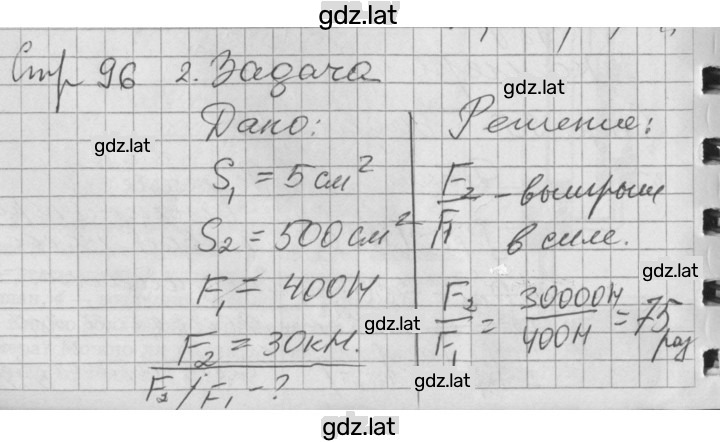 gdz.lat
Стр 96 2. Задача
gdz.lat
Дано:
gdz.lat
S₁ = 5 см²
S₂ = 500 см²
F₁ = 400Н
F₂ = 30кН.
F₂ / F₁ - ?
Решение:
gdz.lat
F₂/F₁ - выигрыш
в силе.
gdz.lat
F₂/F₁ = 30000Н/400Н = 75 раз
gdz.lat
gdz.lat
gdz.lat